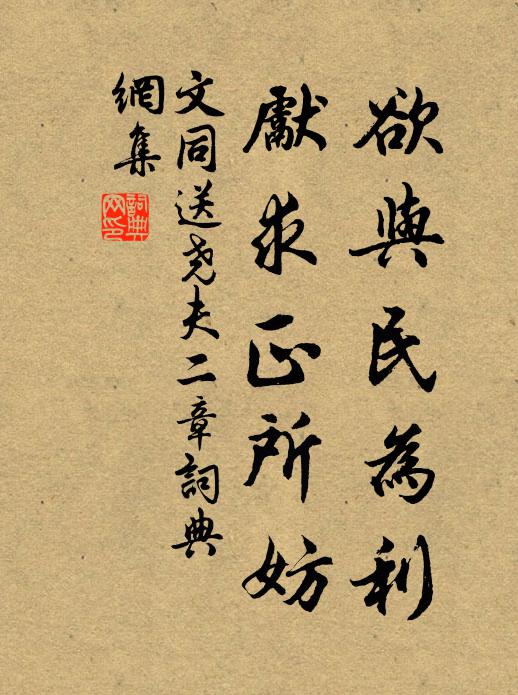 欲與民為利
獻求正所妨
文同送尧夫二章詞典
網集
詞典
网印